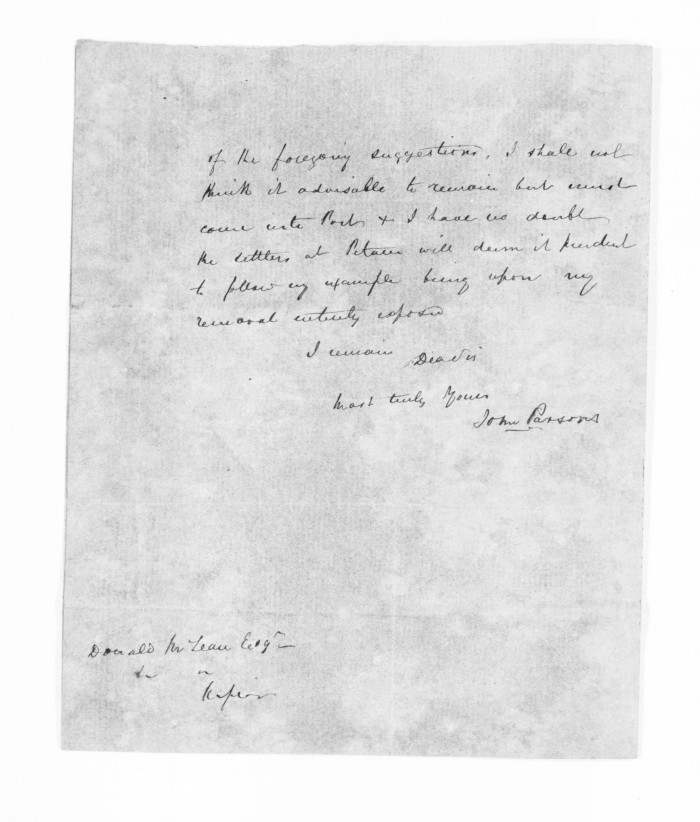 of the foregoing suggestions, I shall not
think it advisable to remain but must
come into Port & I have no doubt
the settlers at Petane will deem it prudent
to follow my example being upon my
removal entirely exposed
I remain Dear Sir
Most truly Yours
John Parsons
Donald McLean Esqre
Napier